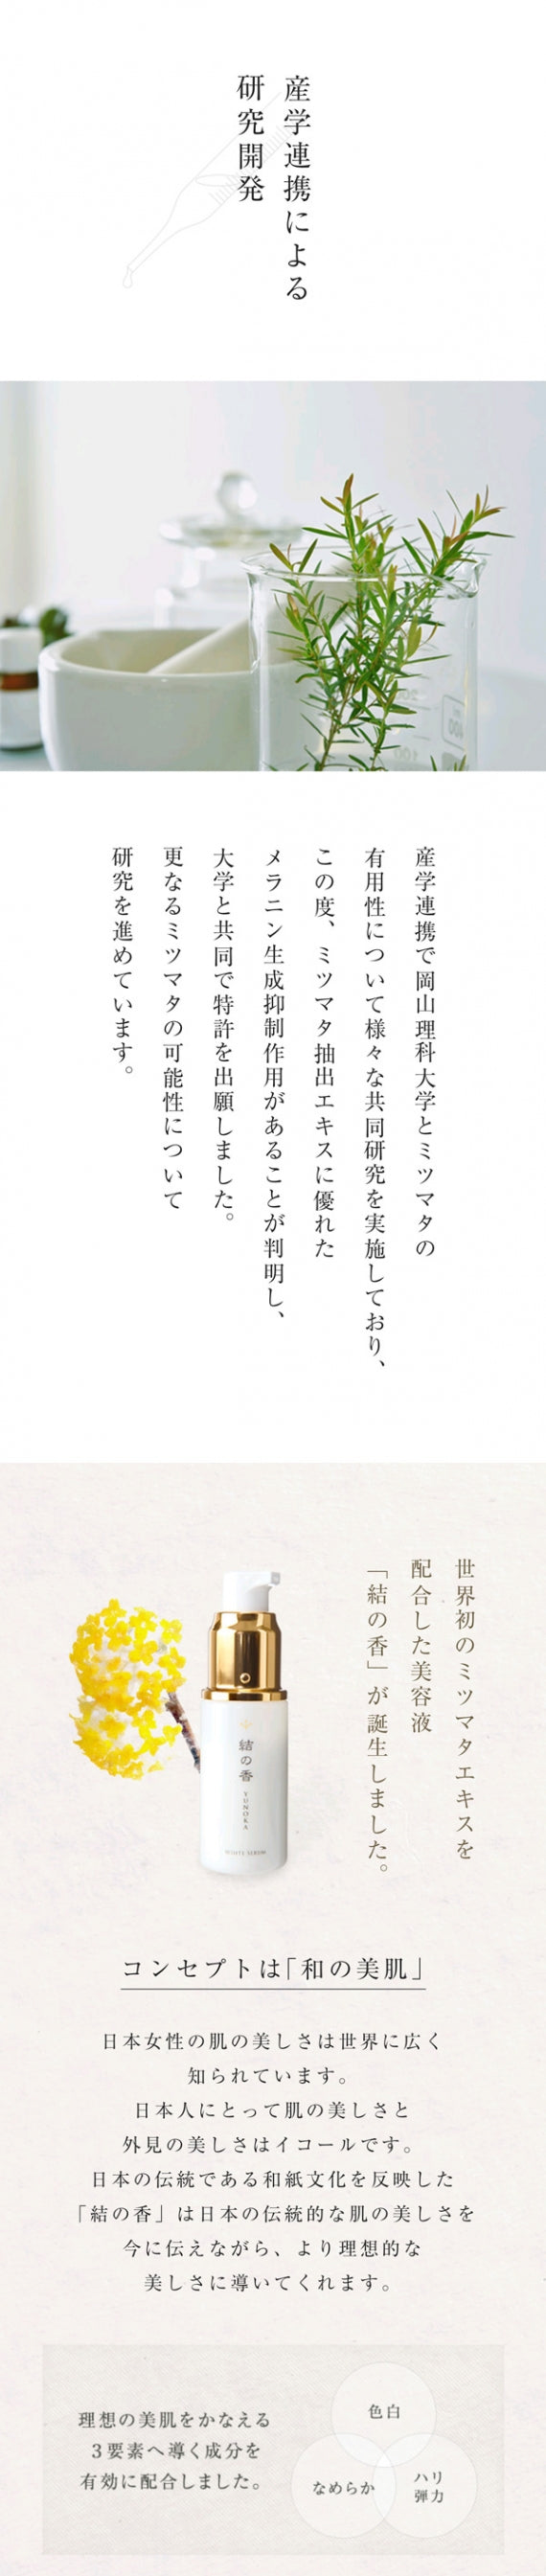 産学連携による
研究開発
産学連携で岡山理科大学とミツマタの
有用性について様々な共同研究を実施しており、
この度、ミツマタ抽出エキスに優れた
メラニン生成抑制作用があることが判明し、
大学と共同で特許を出願しました。
更なるミツマタの可能性について
研究を進めています。
世界初のミツマタエキスを
配合した美容液
「結の香」が誕生しました。
結の香
YUNOKA
WHITE SERUM
コンセプトは「和の美肌」
日本女性の肌の美しさは世界に広く
知られています。
日本人にとって肌の美しさと
外見の美しさはイコールです。
日本の伝統である和紙文化を反映した
「結の香」は日本の伝統的な肌の美しさを
今に伝えながら、より理想的な
美しさに導いてくれます。
理想の美肌をかなえる
3要素へ導く成分を
有効に配合しました。
色白
なめらか
ハリ
弾力